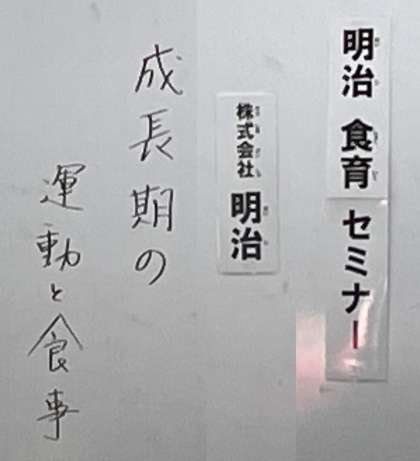 明治 食育 セミナー
株式会社 明治
成長期の
運動と食事